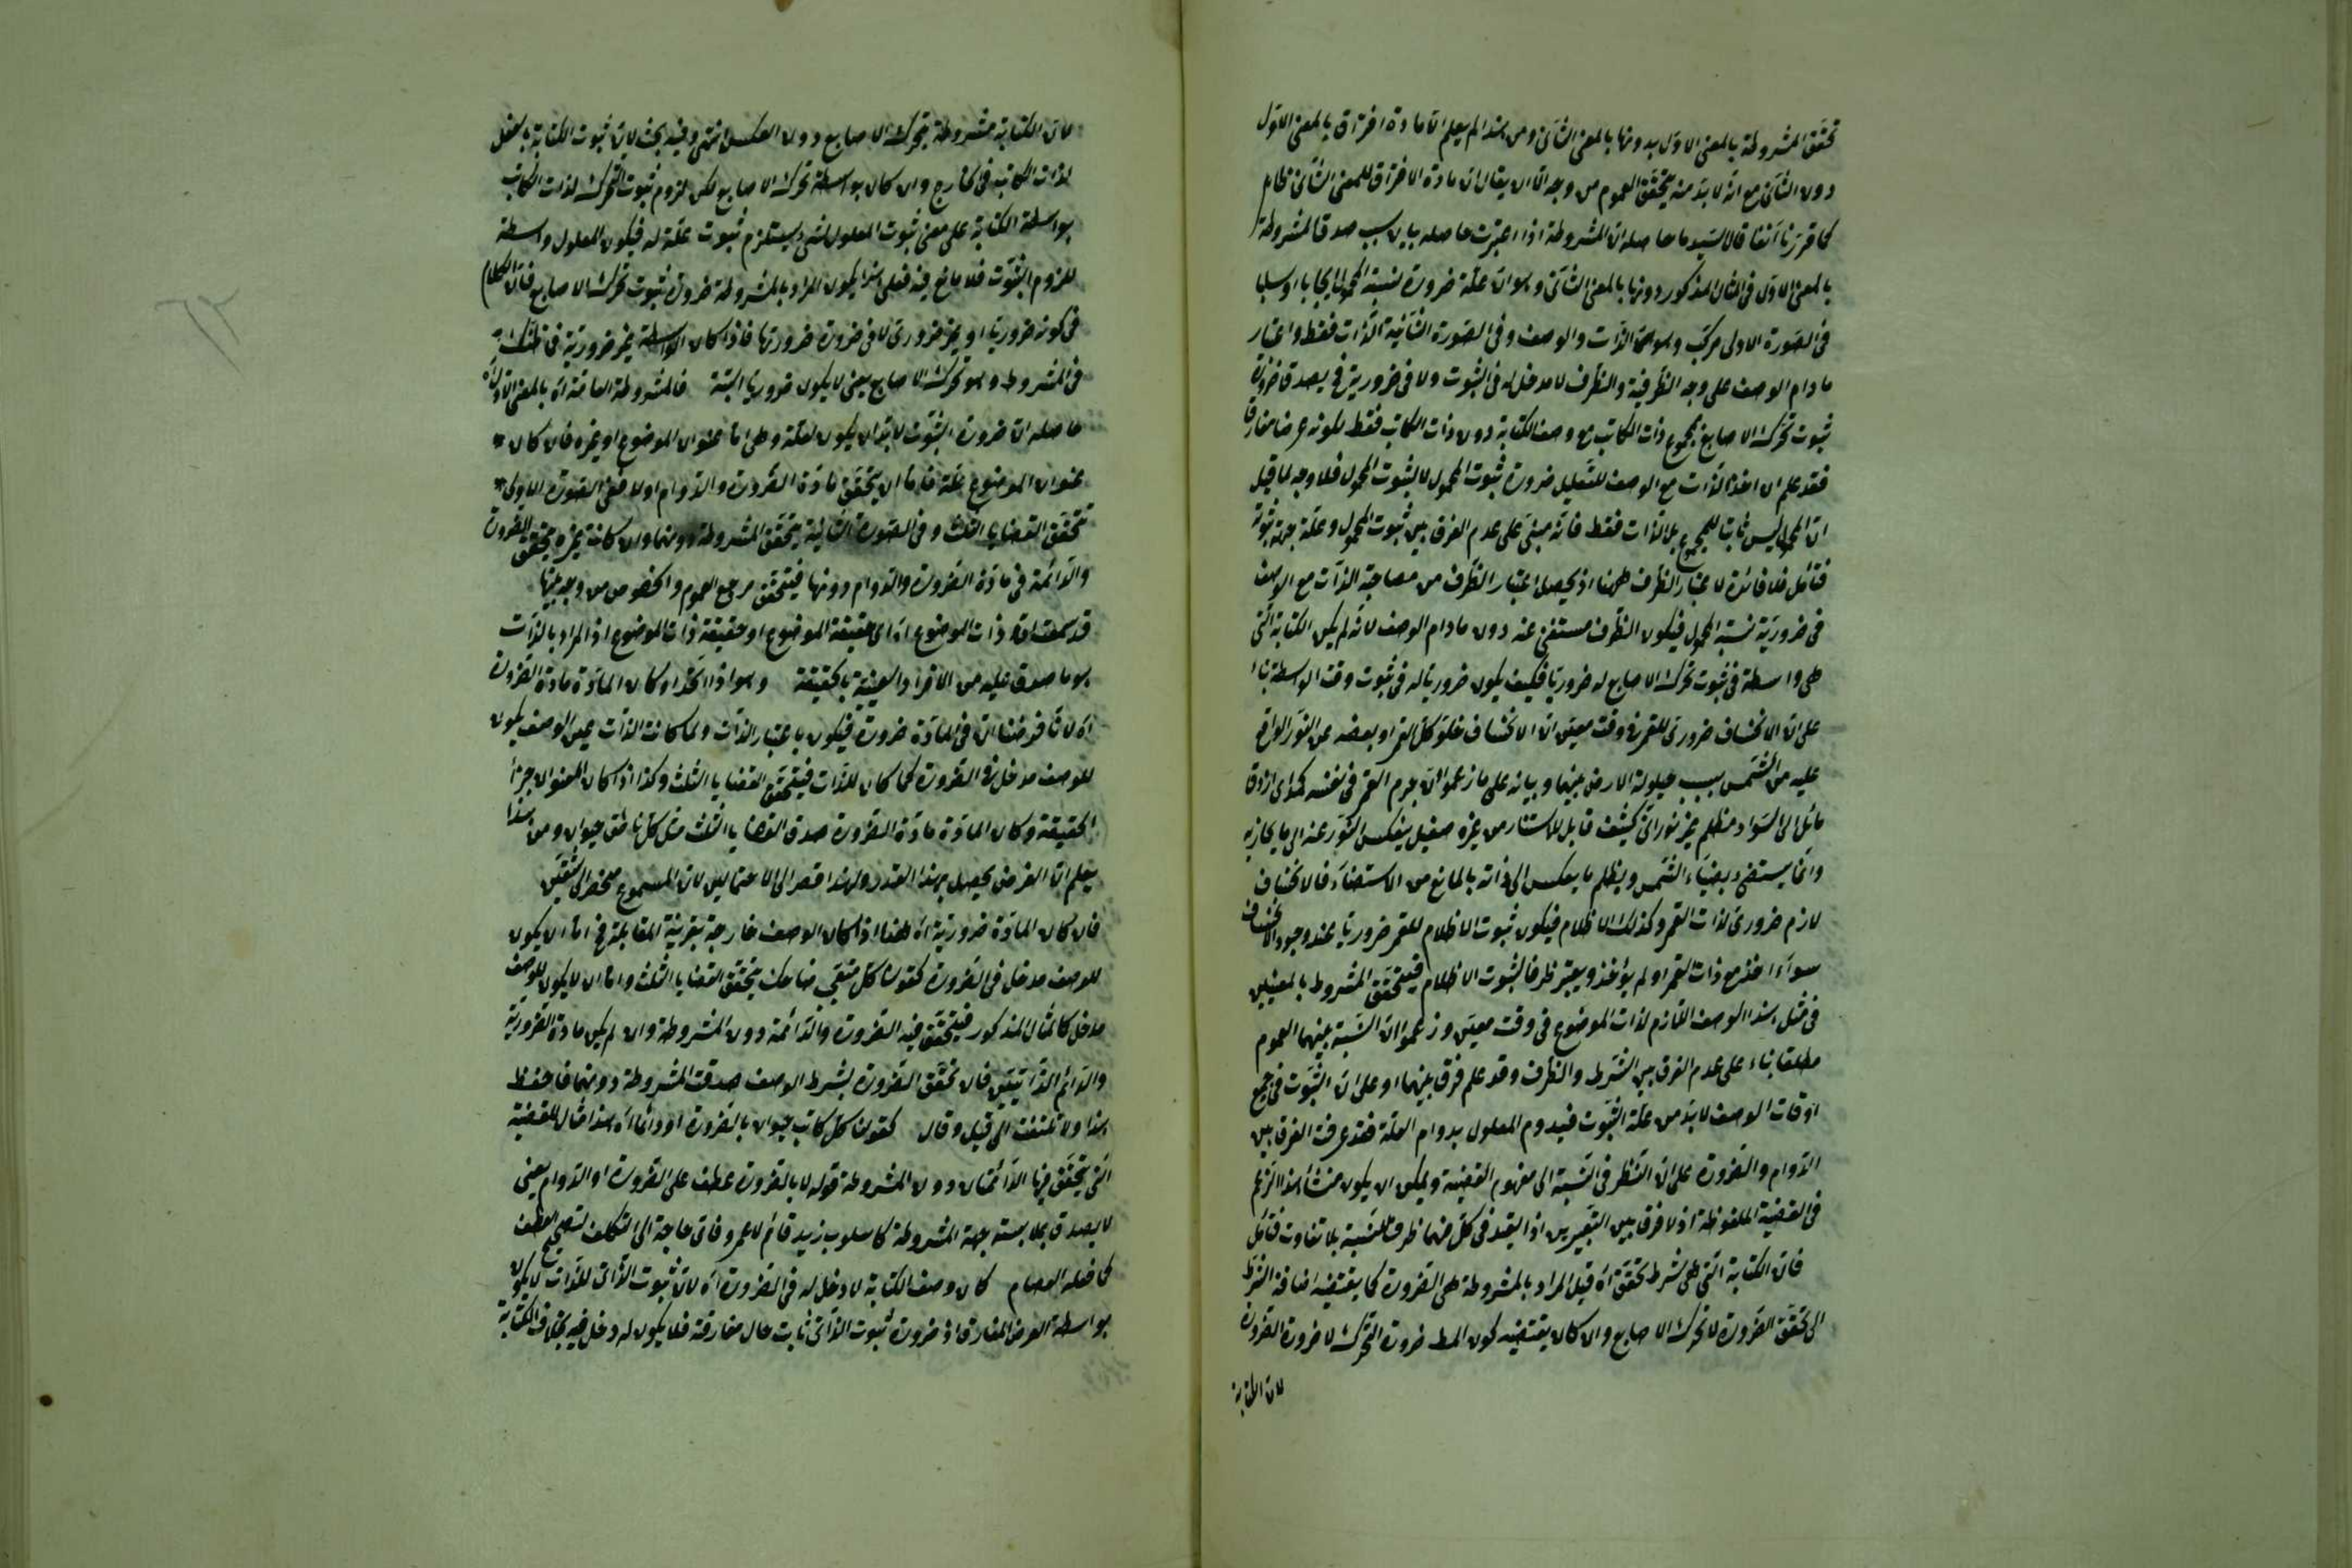 تحقق المشروطة بالمعنى الاول بدونها بالمعنى الثانى ومن هذا لم يعلم ان مادة افتراق بالمعنى الاول
دون الثانى مع انه لا بد منه ليتحقق العموم من وجه الا ان يقال ان مادة الافتراق للمعنى الثانى
كما قررنا آنفا قال السيد ما حاصله ان المشروطة اذا اعتبرت سبب صدق المشروطة
بالمعنى الاول فى المثال المذكور دونها بالمعنى الثانى وهو ان علة ضرورة نسبة المحمول ايجابا او سلبا
فى الصورة الاولى مركب وهو الذات والوصف وفى الصورة الثانية الذات فقط واعتبار
ما دام الوصف على وجه الظرفية والظرف لا مدخل له فى الثبوت ولا فى ضرورية يصدق ضرورة
ثبوت تحرك الاصابع لمجموع ذات الكاتب مع وصف الكتابة دون ذات الكاتب فقط لكونه عرضا مفارقا
فقد علم ان اخذ الذات مع الوصف للتعليل ضرورة ثبوت المحمول لا لثبوت المحمول فلا وجه لما قيل
ان المحمول ليس ثابتا للمجموع بل للذات فقط فانه مبنى على عدم الفرق بين ثبوت المحمول وعلة جهة ثبوته
فتأمل فلا فائدة لاعتبار الظرف ههنا اذ يحصل اعتبار الظرف من مصاحبة الذات مع الوصف
فى ضرورية نسبة المحمول فيكون الظرف مستغنى عنه دون ما دام الوصف لانه لم يكن الكتابة التى
هى واسطة فى ثبوت تحرك الاصابع له ضروريا فكيف يكون ضروريا له فى ثبوت وقت الواسطة بناء
على ان الانخساف ضرورى للقمر فى وقت معين ان الانخساف خلو كل القمر او بعضه عن النور الواقع
عليه من الشمس بسبب حيلولة الارض بينهما وبيانه على ما زعموا ان جرم القمر فى نفسه كمد ازرق
مائل الى السواد مظلم غير نورانى كثيف قابل للاستنار من غيره صقيل ينعكس النور عنه الى ما يحاذيه
وانما يستضىء بضياء الشمس ويظلم بالمانع من الاستضاءة فالانخساف
لازم ضرورى لذات القمر وكذلك الاظلام فيكون ثبوت الاظلام للقمر ضروريا عند وجود الانخساف
سواء اخذ مع ذات القمر او لم يؤخذ ويعتبر ظرفا لثبوت الاظلام فيتحقق المشروط بالمعنيين
فى مثل هذا الوصف اللازم لذات الموضوع فى وقت معين وزعموا ان النسبة بينهما العموم
مطلقا بناء على عدم الفرق بين الشرط والظرف وقد علم فرق بينهما او على ان الثبوت فى جميع
اوقات الوصف لا بد من علة الثبوت فيدوم المعلول بدوام العلة فقد عرفت الفرق بين
الدوام والضرورة على ان النظر فى النسبة الى مفهوم القضية ويمكن ان يكون منشأ هذا الزعم
فى القضية الملفوظة اذ لا فرق بين التعبيرين اذ القيد فى كل منهما ظرف للنسبة بلا تفاوت فتأمل
فان الكتابة التى هى شرط تحقق اه قيل المراد بالمشروطة هى الضرورة كما يقتضيه اضافة الشرط
الى تحقق الضرورة لا تحرك الاصابع وان كان يقتضيه كون المط ضرورة التحرك لا ضرورة الضرورة
لان الكتابة
لان الكتابة مشروطة بتحرك الاصابع دون العكس انتهى وفيه بحث لان ثبوت الكتابة بالفعل
لذات الكاتب فى الخارج وان كان بواسطة تحرك الاصابع لكن لزوم ثبوت التحرك لذات الكاتب
بواسطة الكتابة على معنى ثبوت المعلول لشىء يستلزم ثبوت علة له فيكون المعلول واسطة
للزوم الثبوت فلا مانع فيه فعلى هذا يكون المراد بالمشروطة ضرورة ثبوت تحرك الاصابع فان الكلام
فى كونه ضروريا او غير ضرورى لا فى ضرورة ضرورتها فاذا كان الواسطة غير ضرورية فما ظنك
فى المشروط وهو تحرك الاصابع يعنى لا يكون ضروريا البتة فالمشروطة العامة اه بالمعنى الاول
حاصله ان ضرورة الثبوت لا بد ان يكون لعلة وهى اما عنوان الموضوع او غيره فان كان
عنوان الموضوع علة فاما ان يتحقق مادة الضرورة والدوام او لا ففى الصورة الاولى
تتحقق القضايا الثلث وفى الصورة الثانية يتحقق المشروطة دونهما وان كانت غيره يتحقق الضرورة
والدائمة فى مادة الضرورة والدوام دونها فيتحقق مرجع العموم والخصوص من وجه بينها
قد سمعت ان ذات الموضوع اه اى حقيقة الموضوع او حقيقة ذات الموضوع اذ المراد بالذات
هو ما صدق عليه من الافراد والعينية بالحقيقة وهو اذا اتحدا وكان المادة مادة الضرورة
اه لانا فرضنا ان فى المادة ضرورة فيكون باعتبار الذات ولما كانت الذات عين الوصف يكون
للوصف مدخل فى الضرورة كما كان للذات فيتحقق القضايا الثلث وكذا اذا كان العنوان جزأ
الحقيقة وكان المادة مادة الضرورة صدق القضايا الثلث مثل كل ناطق حيوان ومن هذا
يعلم ان الغرض يحصل بهذا القدر ولهذا اقتصر الى الاحتمالين لان المسموع منحصر الى شقين
فان كان المادة ضرورية اه هذا اذا كان الوصف خارجة بقرينة المقابلة فح اما ان يكون
للوصف مدخل فى الضرورة كقولنا كل متعجب ضاحك يتحقق القضايا الثلث واما ان لا يكون للوصف
مدخل كالمثال المذكور فيتحقق فيه الضرورة والدائمة دون المشروطة وان لم يكن مادة الضرورية
والدائم الذاتيتين فان تحقق الضرورة بشرط الوصف صدقت المشروطة دونهما فاحفظ
هذا ولا تلتفت الى قيل وقال كقولنا كل كاتب حيوان بالضرورة او دائما اه هذا مثال للقضية
التى يتحقق فيها الدائمتان دون المشروطة قوله لا بالضرورة عطف على الضرورة او الدوام يعنى
لا يصدق بملابسة جهة المشروطة كاسلوب زيد قائم لا عمرو فاى حاجة الى التكلف لتصحيح العطف
كما فعله العصام كان وصف الكتابة لا دخل له فى الضرورة اه لان ثبوت الذاتى للذات لا يكون
بواسطة العرض المفارق اذ ضرورة ثبوت الذاتى ثابت حال مفارقته فلا يكون له دخل فيه بخلاف الكتابة